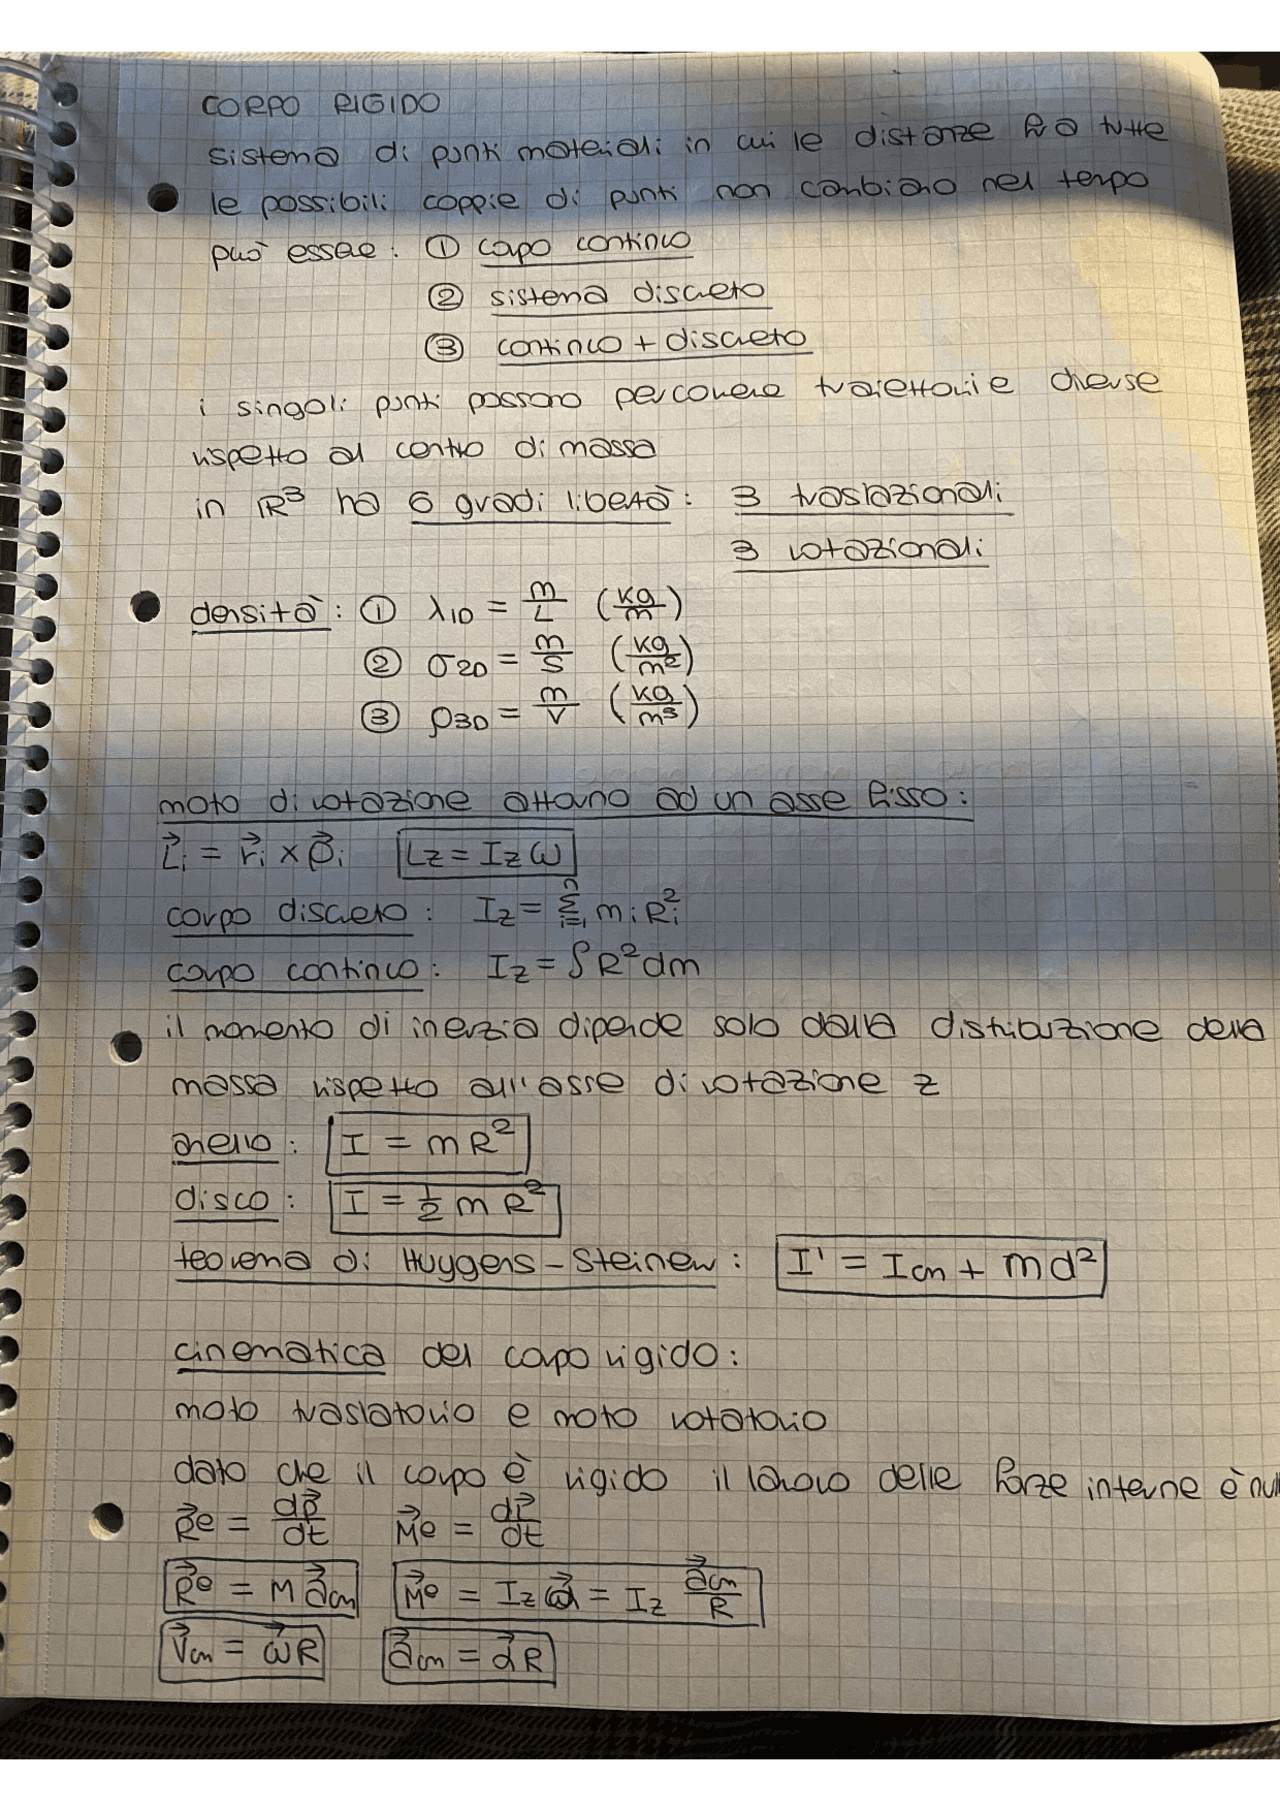 CORPO RIGIDO
sistema di punti materiali in cui le distanze fra tutte
le possibili coppie di punti non cambiano nel tempo
può essere: ① corpo continuo
② sistema discreto
③ continuo + discreto
i singoli punti possono percorrere traiettorie diverse
rispetto al centro di massa
in ℝ³ ha 6 gradi libertà: 3 traslazionali
3 rotazionali
densità: ① λ1D = m/L (kg/m)
② σ2D = m/S (kg/m²)
③ ρ3D = m/V (kg/m³)
moto di rotazione attorno ad un asse fisso:
L⃗i = r⃗i × p⃗i Lz = Iz ω
corpo discreto: Iz = Σⁿi=1 mi Ri²
corpo continuo: Iz = ∫R² dm
il momento di inerzia dipende solo dalla distribuzione della
massa rispetto all'asse di rotazione z
anello: I = mR²
disco: I = 1/2 mR²
teorema di Huygens-Steiner: I' = Icm + md²
cinematica del corpo rigido:
moto traslatorio e moto rotatorio
dato che il corpo è rigido il lavoro delle forze interne è nul
R⃗e = dp⃗/dt M⃗e = dL⃗/dt
R⃗e = M a⃗cm M⃗e = Iz α⃗ = Iz a⃗cm/R
v⃗cm = ω⃗R a⃗cm = α⃗R